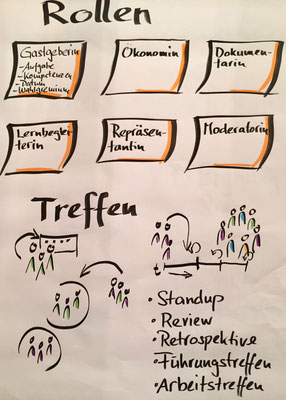 Rollen
Gastgeberin
-Aufgabe
-Kompetenzen
-Datum
-Wahlgremium
Ökonomin
Dokumen-
tarin
Lernbeglei-
terin
Repräsen-
tantin
Moderatorin
Treffen
t
• Standup
• Review
• Retrospektive
• Führungstreffen
• Arbeitstreffen